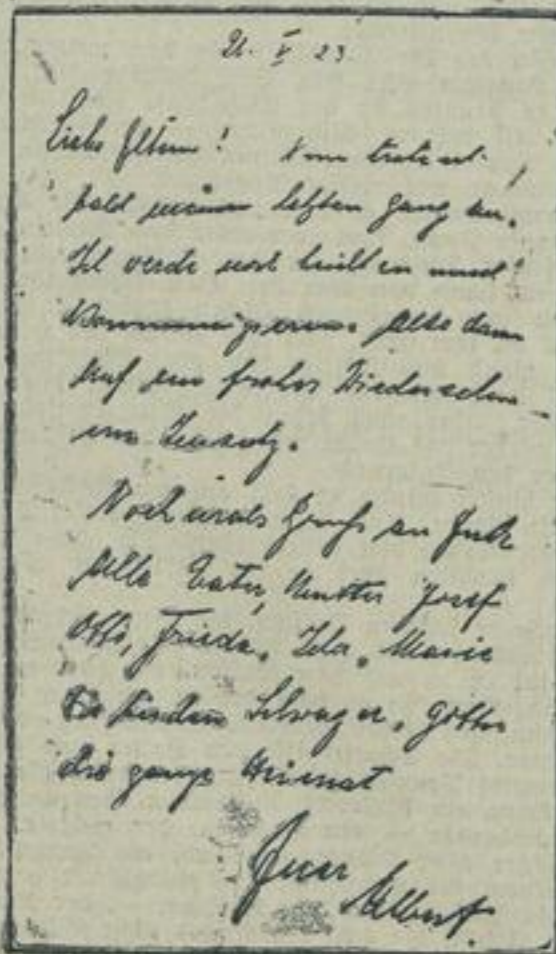 26. V 23.
Liebe Eltern! Nun trete ich
bald meinen letzten Gang an.
Ich werde noch beichten und
kommunizieren. Also dann
auf ein frohes Wiedersehn
im Jenseits.
Nochmals Gruß an Euch
alle Vater, Mutter Josef
Otto, Frieda, Ida, Marie
die beiden Schwager,
die ganze Heimat
Euer
Albert.